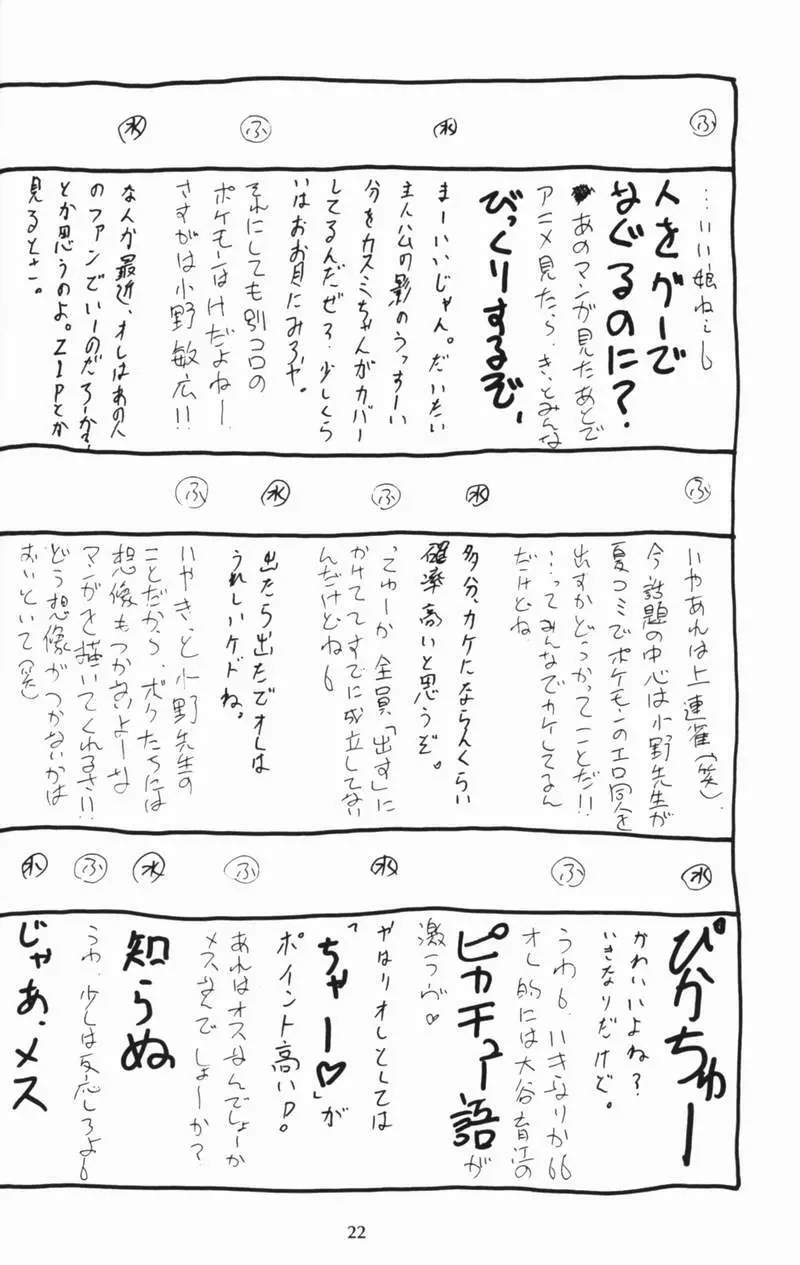 ふ
…いい娘ねェ6
水
人をグーで
なぐるのに?
あのマンガ見たあとで
アニメ見たら、きっとみんな
びっくりするぞ、
ふ
まーいいじゃん。だいたい
主人公の影のうっすーい
分をカスミちゃんがカバー
してるんだぜろ、少しくら
いはおお目にみろや。
水
それにしても別コロの
ポケモンはけだよねー、
さすがは小野敏広!!
な人か最近、オレはあの人
のファンでいーのだろーか?
とか思うのよ。ZIPとか
見るとさー。
ふ
いやあれは上連雀(笑)、
今話題の中心は小野先生が
夏コミでポケモンのエロ同人を
出すかどうかってことだ!!
…ってみんなでカケしてるん
だけどね
水
多分、カケにならんくらい
確率高いと思うぞ。
ふ
ってゆーか全員「出す」に
かけててすでに成立してない
んだけどね6
水
出たら出たでオレは
うれしいケドね。
ふ
いやきっと小野先生の
ことだから、ボクたちには
想像もつかないよーな
マンガを描いてくれるさ!!
どう想像がつかないかは
おいといて(笑)
水
ぴかちゅー
かわいいよね?
いきなりだけど。
ふ
うわ6、いきなりか66
オレ的には大谷育江の
ピカチュー語が
激ラヴ♡
水
やはりオレとしては
「ちゃー♡」が
ポイント高いD。
ふ
あれはオスなんでしょーか
メスなんでしょーか?
水
知らぬ
ふ
うわ、少しは反応しろよ6
水
じゃあ、メス
22